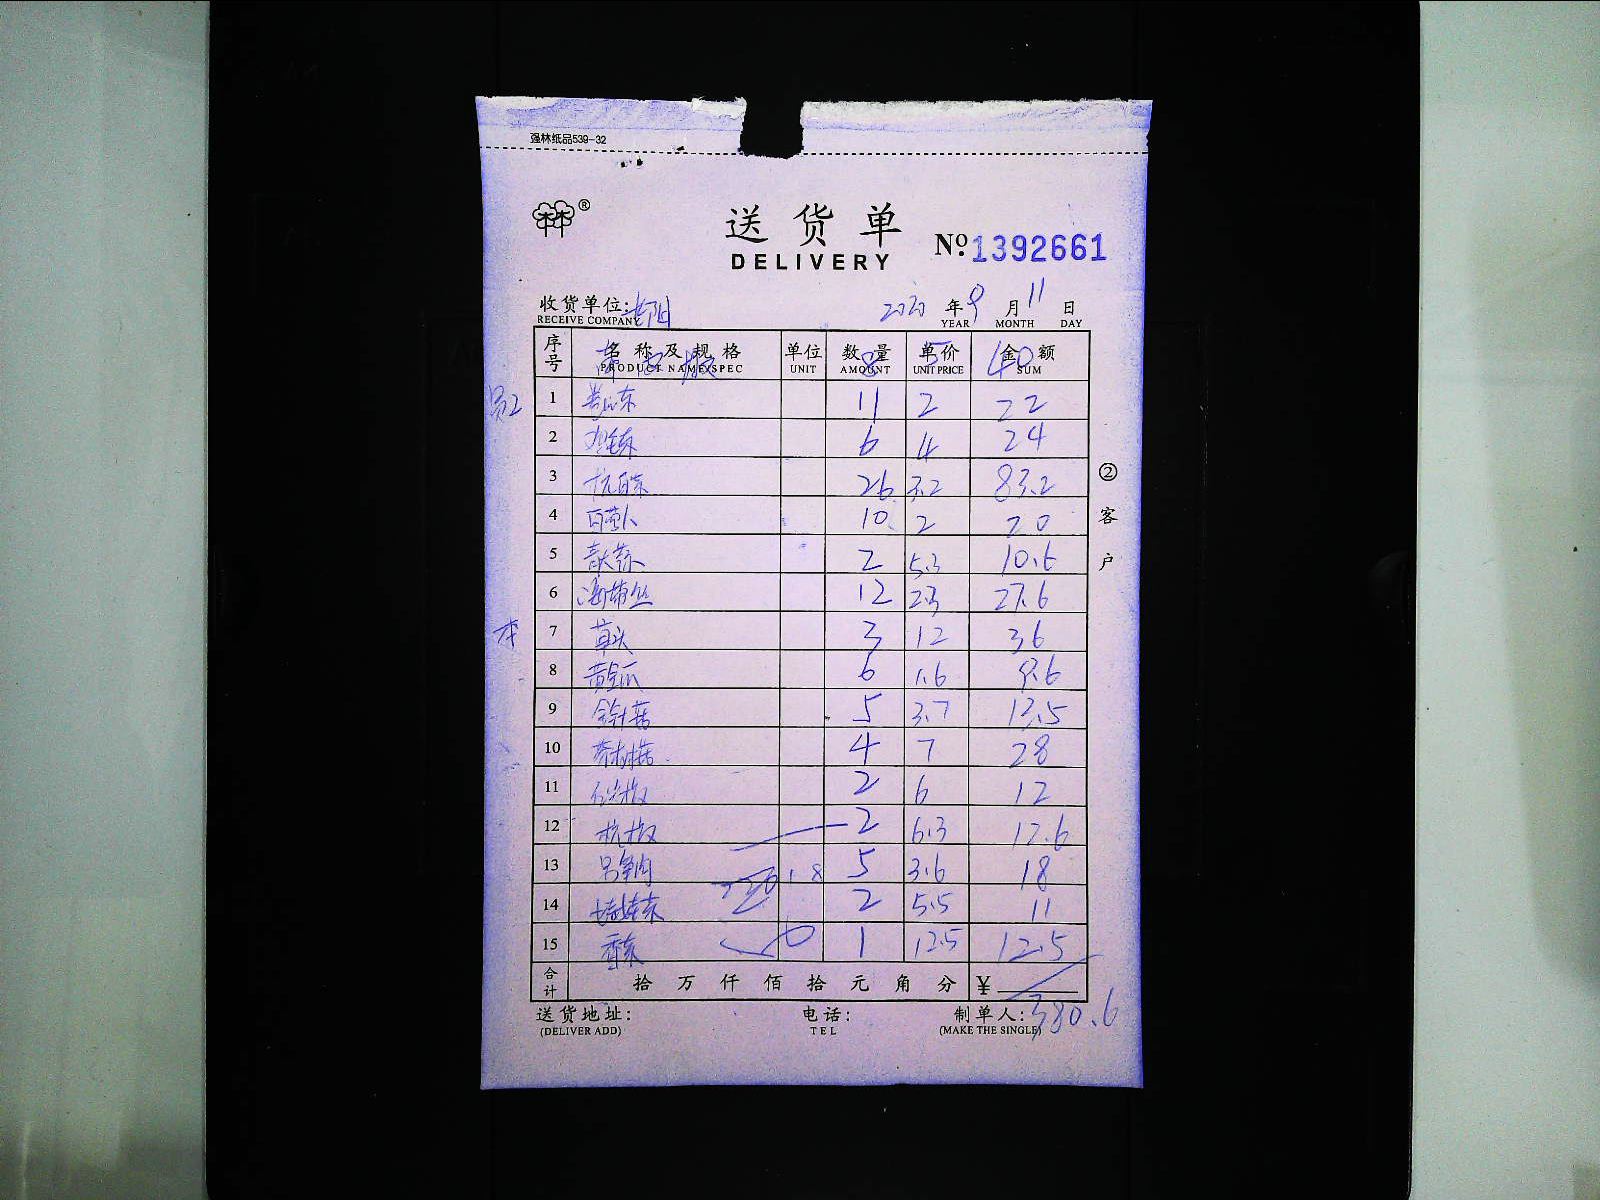 强林纸品539-32
林林®
送货单
DELIVERY
No.1392661
收货单位:
RECEIVE COMPANY
2020年9月11日
YEAR MONTH DAY
序号 名称及规格 单位 数量 单价 金额
PRODUCT NAME/SPEC UNIT AMOUNT UNIT PRICE SUM
8 5 40
1 11 2 22
2 6 4 24
3 杭白菜 26 3.2 83.2
4 白萝卜 10 2 20
5 2 5.3 10.6
6 海带丝 12 2.3 27.6
7 草头 3 12 36
8 黄金瓜 6 1.6 9.6
9 金针菇 5 3.7
10 茶树菇 4 7 28
11 2 6 12
12 杭椒 2 6.3 12.6
13 5 3.6 18
14 2 5.5 11
15 香菜 1 12.5 12.5
合计 拾 万 仟 佰 拾 元 角 分 ¥
380.6
送货地址: 电话: 制单人:
(DELIVER ADD) TEL (MAKE THE SINGLE)
② 客户